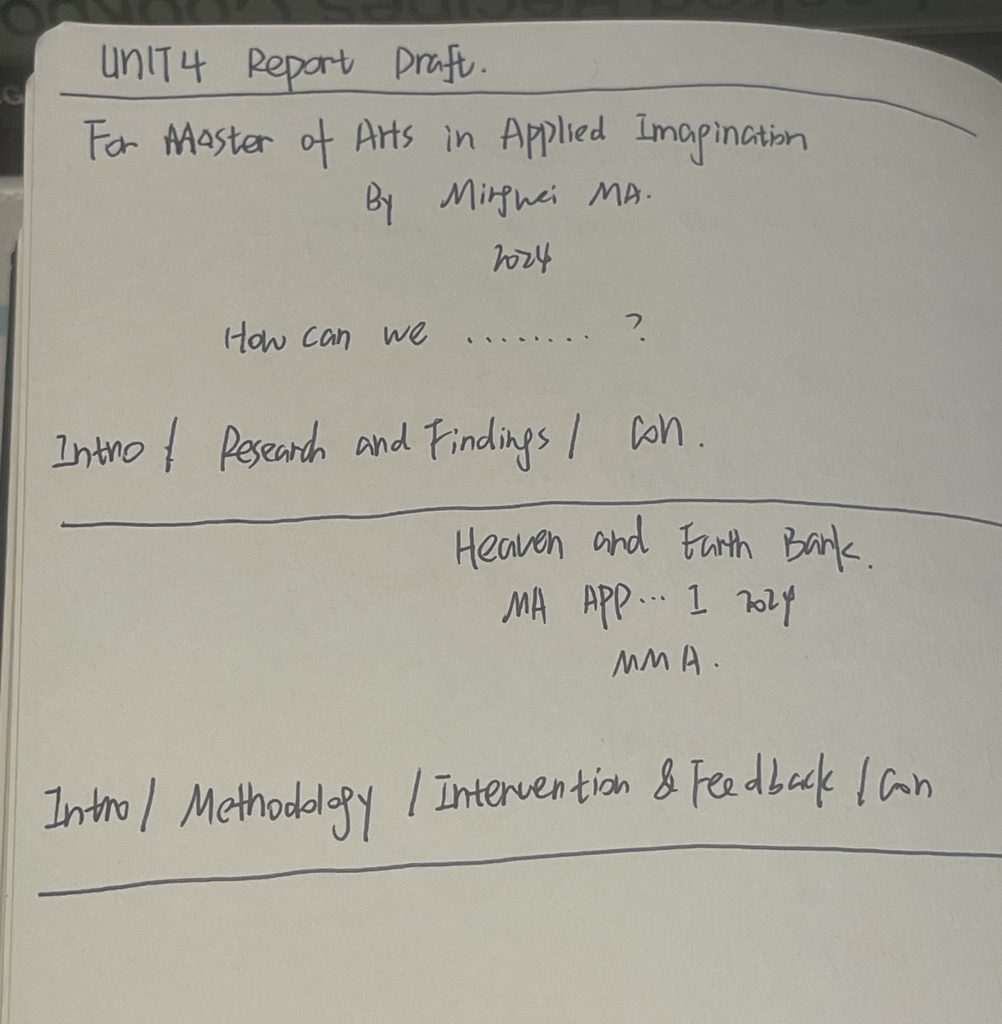 UNIT4 Report Draft.
For Master of Arts in Applied Imagination
By Mingwei MA.
2024
How can we ........ ?
Intro / Research and Findings / Con.
Heaven and Earth Bank.
MA APP... I 2024
MMA.
Intro / Methodology / Intervention & Feedback / Con